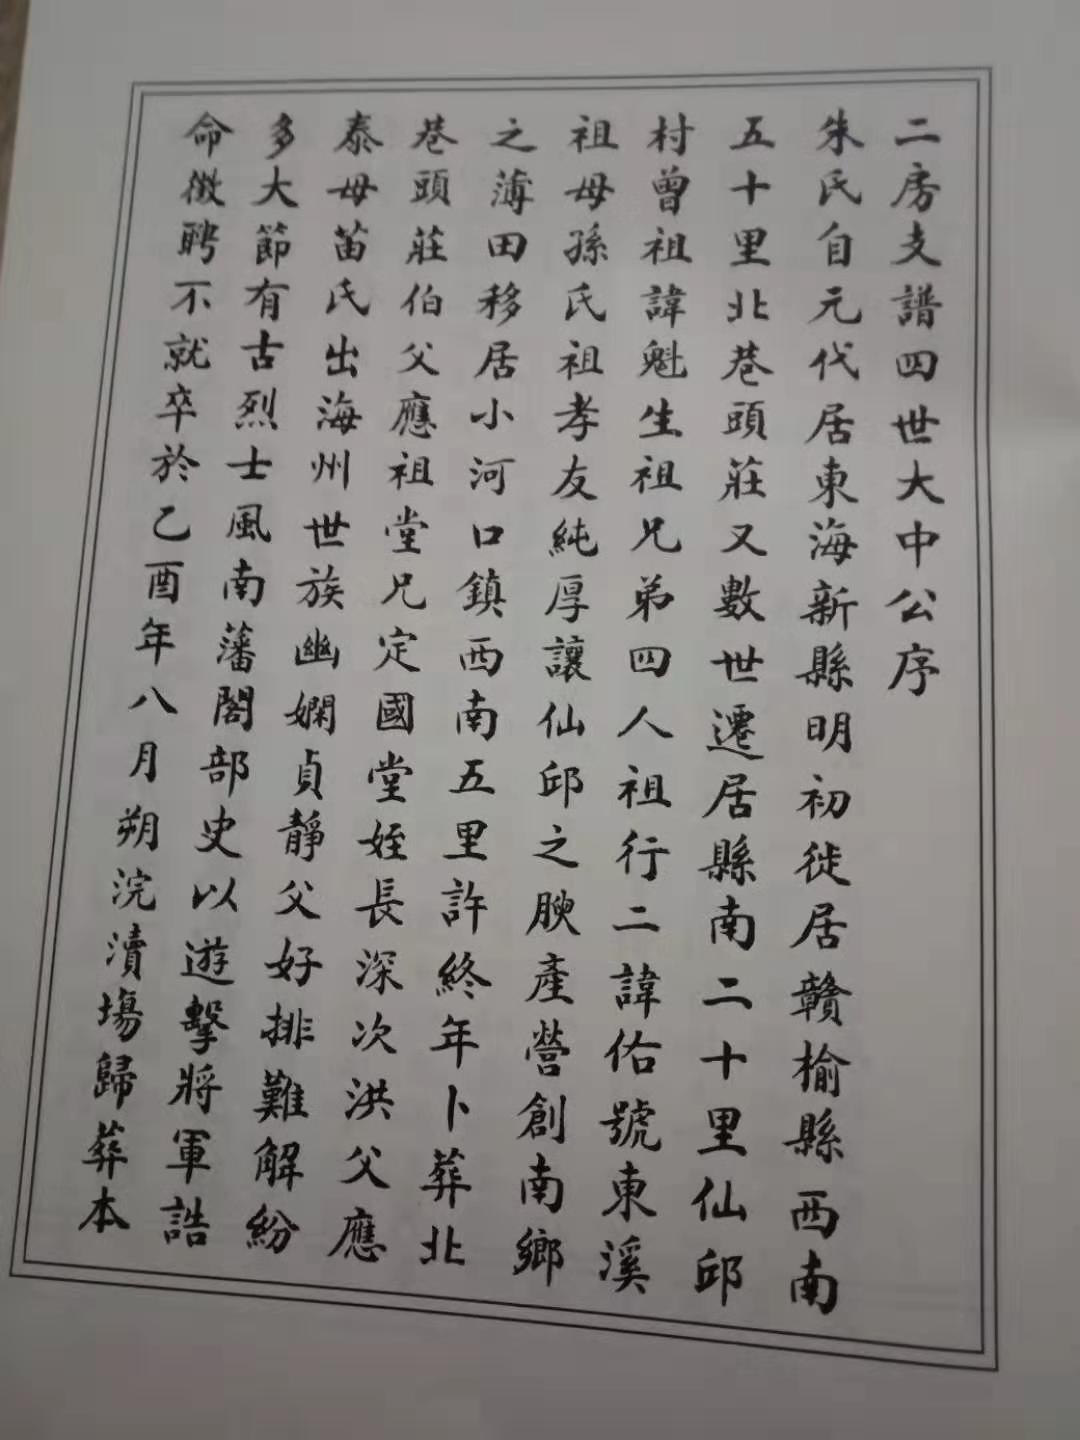 二房支譜四世大中公序
朱氏自元代居東海新縣明初徙居贛榆縣西南
五十里北巷頭莊又數世遷居縣南二十里仙邱
村曾祖諱魁生祖兄弟四人祖行二諱佑號東溪
祖母孫氏祖孝友純厚讓仙邱之腴產營創南鄉
之薄田移居小河口鎮西南五里許終年卜葬北
巷頭莊伯父應祖堂兄定國堂姪長深次洪父應
泰母苗氏出海州世族幽嫻貞靜父好排難解紛
多大節有古烈士風南藩閣部史以遊擊將軍誥
命徵聘不就卒於乙酉年八月朔浣瀆場歸葬本